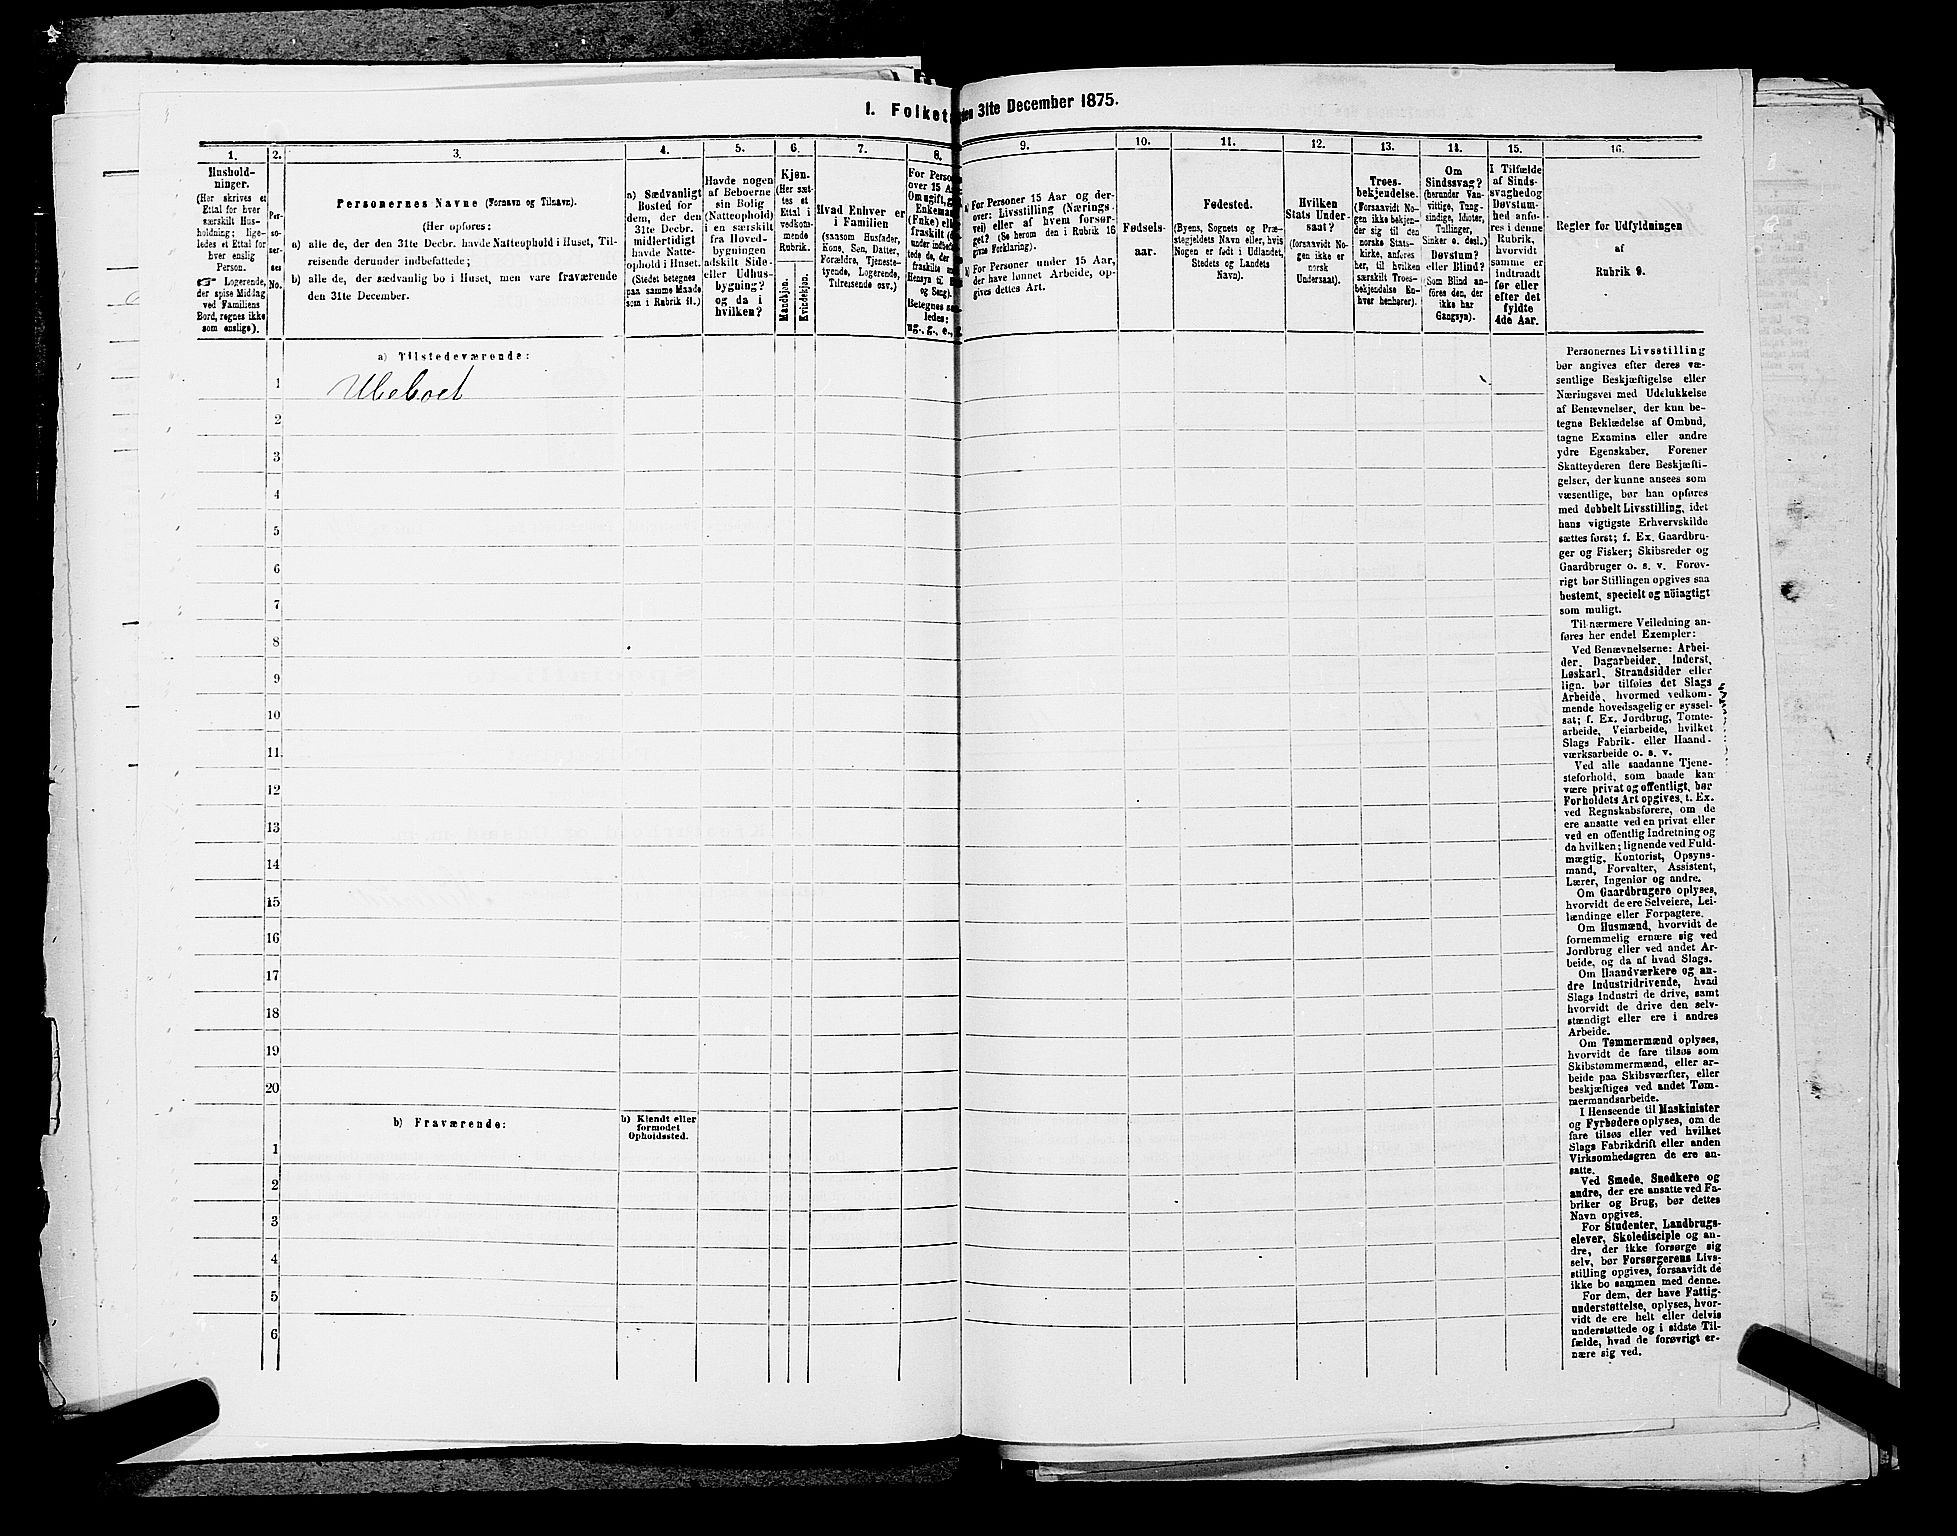 1. Folket
den 31te December 1875.
1.
Husholdninger.
(Her skrives et
Ettal for hver
særskilt Husholdning; ligeledes et Ettal for
hver enslig
Person.
☞ Logerende,
der spise Middag
ved Familiens
Bord, regnes ikke
som enslige).
2.
Personernes
No.
3.
Personernes Navne (Fornavn og Tilnavn).
(Her opføres:
a) alle de, der den 31te Decbr. havde Natteophold i Huset, Tilreisende derunder indbefattede;
b) alle de, der sædvanlig bo i Huset, men vare fraværende
den 31te December.
4.
a) Sædvanligt
Bosted for
dem, der den
31te Decbr.
midlertidigt
havde Natteophold i Huset.
(Stedet betegnes
paa samme Maade
som i Rubrik 11.)
5.
Havde nogen
af Beboerne
sin Bolig
(Natteophold)
i en særskilt
fra Hovedbygningen
adskilt Side-
eller Udhusbygning?
og da i
hvilken?
6.
Kjøn.
(Her sættes et
Ettal i
vedkommende
Rubrik.
Mandkjøn.
Kvindekjøn.
7.
Hvad Enhver er
i Familien
(saasom Husfader,
Kone, Søn, Datter,
Forældre, Tjenestetyende, Logerende,
Tilreisende osv.)
8.
For Person
over 15 A
Om ugift, g
Enkeman
(Enke) ell
fraskilt (
under indb
tede de, der
fraskilte
Hensyn til B
og Seng).
Betegnes saaledes:
ug., g., e.,
9.
a) For Personer 15 Aar og derover: Livsstilling (Næringsvei) eller af hvem forsørget? (Se herom den i Rubrik 16
givne Forklaring).
b) For Personer under 15 Aar,
der have lønnet Arbeide, opgives dettes Art.
10.
Fødselsaar.
11.
Fødested.
(Byens, Sognets og Præstegjeldets Navn eller, hvis
Nogen er født i Udlandet,
Stedets og Landets
Navn).
12.
Hvilken
Stats Undersaat?
(forsaavidt Nogen ikke er
norsk
Undersaat).
13.
Troesbekjendelse.
(Forsaavidt Nogen ikke bekjender sig til den
norske Statskirke, anføres
her, til hvilken
særskilt Troesbekjendelse Enhver henhører).
14.
Om
Sindssvag?
(herunder Vanvittige, Tungsindige, Idioter,
Tullinger,
Sinker o. desl.)
Døvstum?
eller Blind?
(Som Blind anføres den, der
ikke har
Gangsyn).
15.
I Tilfælde
af Sindssvaghed og
Døvstumhed anføres i denne
Rubrik,
hvorvidt
samme er
indtraadt
før eller
efter det
fyldte
4de Aar.
16.
Regler for Udfyldningen
af
Rubrik 9.
a) Tilstedeværende:
1
Ubeboet
2
3
4
5
6
7
8
9
10
11
12
13
14
15
16
17
18
19
20
b) Fraværende:
b) Kjendt eller
formodet
Opholdssted.
1
2
3
4
5
6
Personernes Livsstilling
bør angives efter deres væsentlige Beskjæftigelse eller
Næringsvei med Udelukkelse
af Benævnelser, der kun betegne Beklædelse af Ombud,
tagne Examina eller andre
ydre Egenskaber. Forener
Skatteyderen flere Beskjæftigelser, der kunne ansees som
væsentlige, bør han opføres
med dobbelt Livsstilling, idet
hans vigtigste Erhvervskilde
sættes først; f. Ex. Gaardbruger og Fisker; Skibsreder og
Gaardbruger o. s. v. Forøvrigt bør Stillingen opgives saa
bestemt, specielt og nöiagtigt
som muligt.
Til nærmere Veiledning anføres her endel Exempler:
Ved Benævnelserne: Arbeider, Dagarbeider, Inderst,
Løskarl, Strandsidder eller
lign. bør tilføies det Slags
Arbeide, hvormed vedkommende hovedsagelig er sysselsat; f. Ex. Jordbrug, Tomtearbeide, Veiarbeide, hvilket
Slags Fabrik- eller Haandværksarbeide o. s. v.
Ved alle saadanne Tjenesteforhold, som baade kan
være privat og offentligt, bør
Forholdets Art opgives, t. Ex.
ved Regnskabsførere, om de
ere ansatte ved en privat eller
ved en offentlig Indretning og
da hvilken; lignende ved Fuldmægtig, Kontorist, Opsynsmand, Forvalter, Assistent,
Lærer, Ingeniør og andre.
Om Gaardbrugere oplyses,
hvorvidt de ere Selveiere, Leilændinge eller Forpagtere.
Om Husmænd, hvorvidt de
fornemmelig ernære sig ved
Jordbrug eller ved andet Arbeide, og da af hvad Slags.
Om Haandværkere og andre Industridrivende, hvad
Slags Industri de drive, samt
hvorvidt de drive den selvstændigt eller ere i andres
Arbeide.
Om Tømmermænd oplyses,
hvorvidt de fare tilsøs som
Skibstømmermænd, eller arbeide paa Skibsværfter, eller
beskjæftiges ved andet Tømmermandsarbeide.
I Henseende til Maskinister
og Fyrbødere oplyses, om de
fare tilsøs eller ved hvilket
Slags Fabrikdrift eller anden
Virksomhedsgren de ere ansatte.
Ved Smede, Snedkere og
andre, der ere ansatte ved Fabriker og Brug, bør dettes
Navn opgives.
For Studenter, Landbrugselever, Skoledisciple og andre, der ikke forsørge sig
selv, bør Forsørgerens Livsstilling opgives, forsaavidt de
ikke bo sammen med denne.
For dem, der have Fattigunderstøttelse, oplyses, hvorvidt de ere helt eller delvis
understøttede og i sidste Tilfælde, hvad de forøvrigt ernære sig ved.